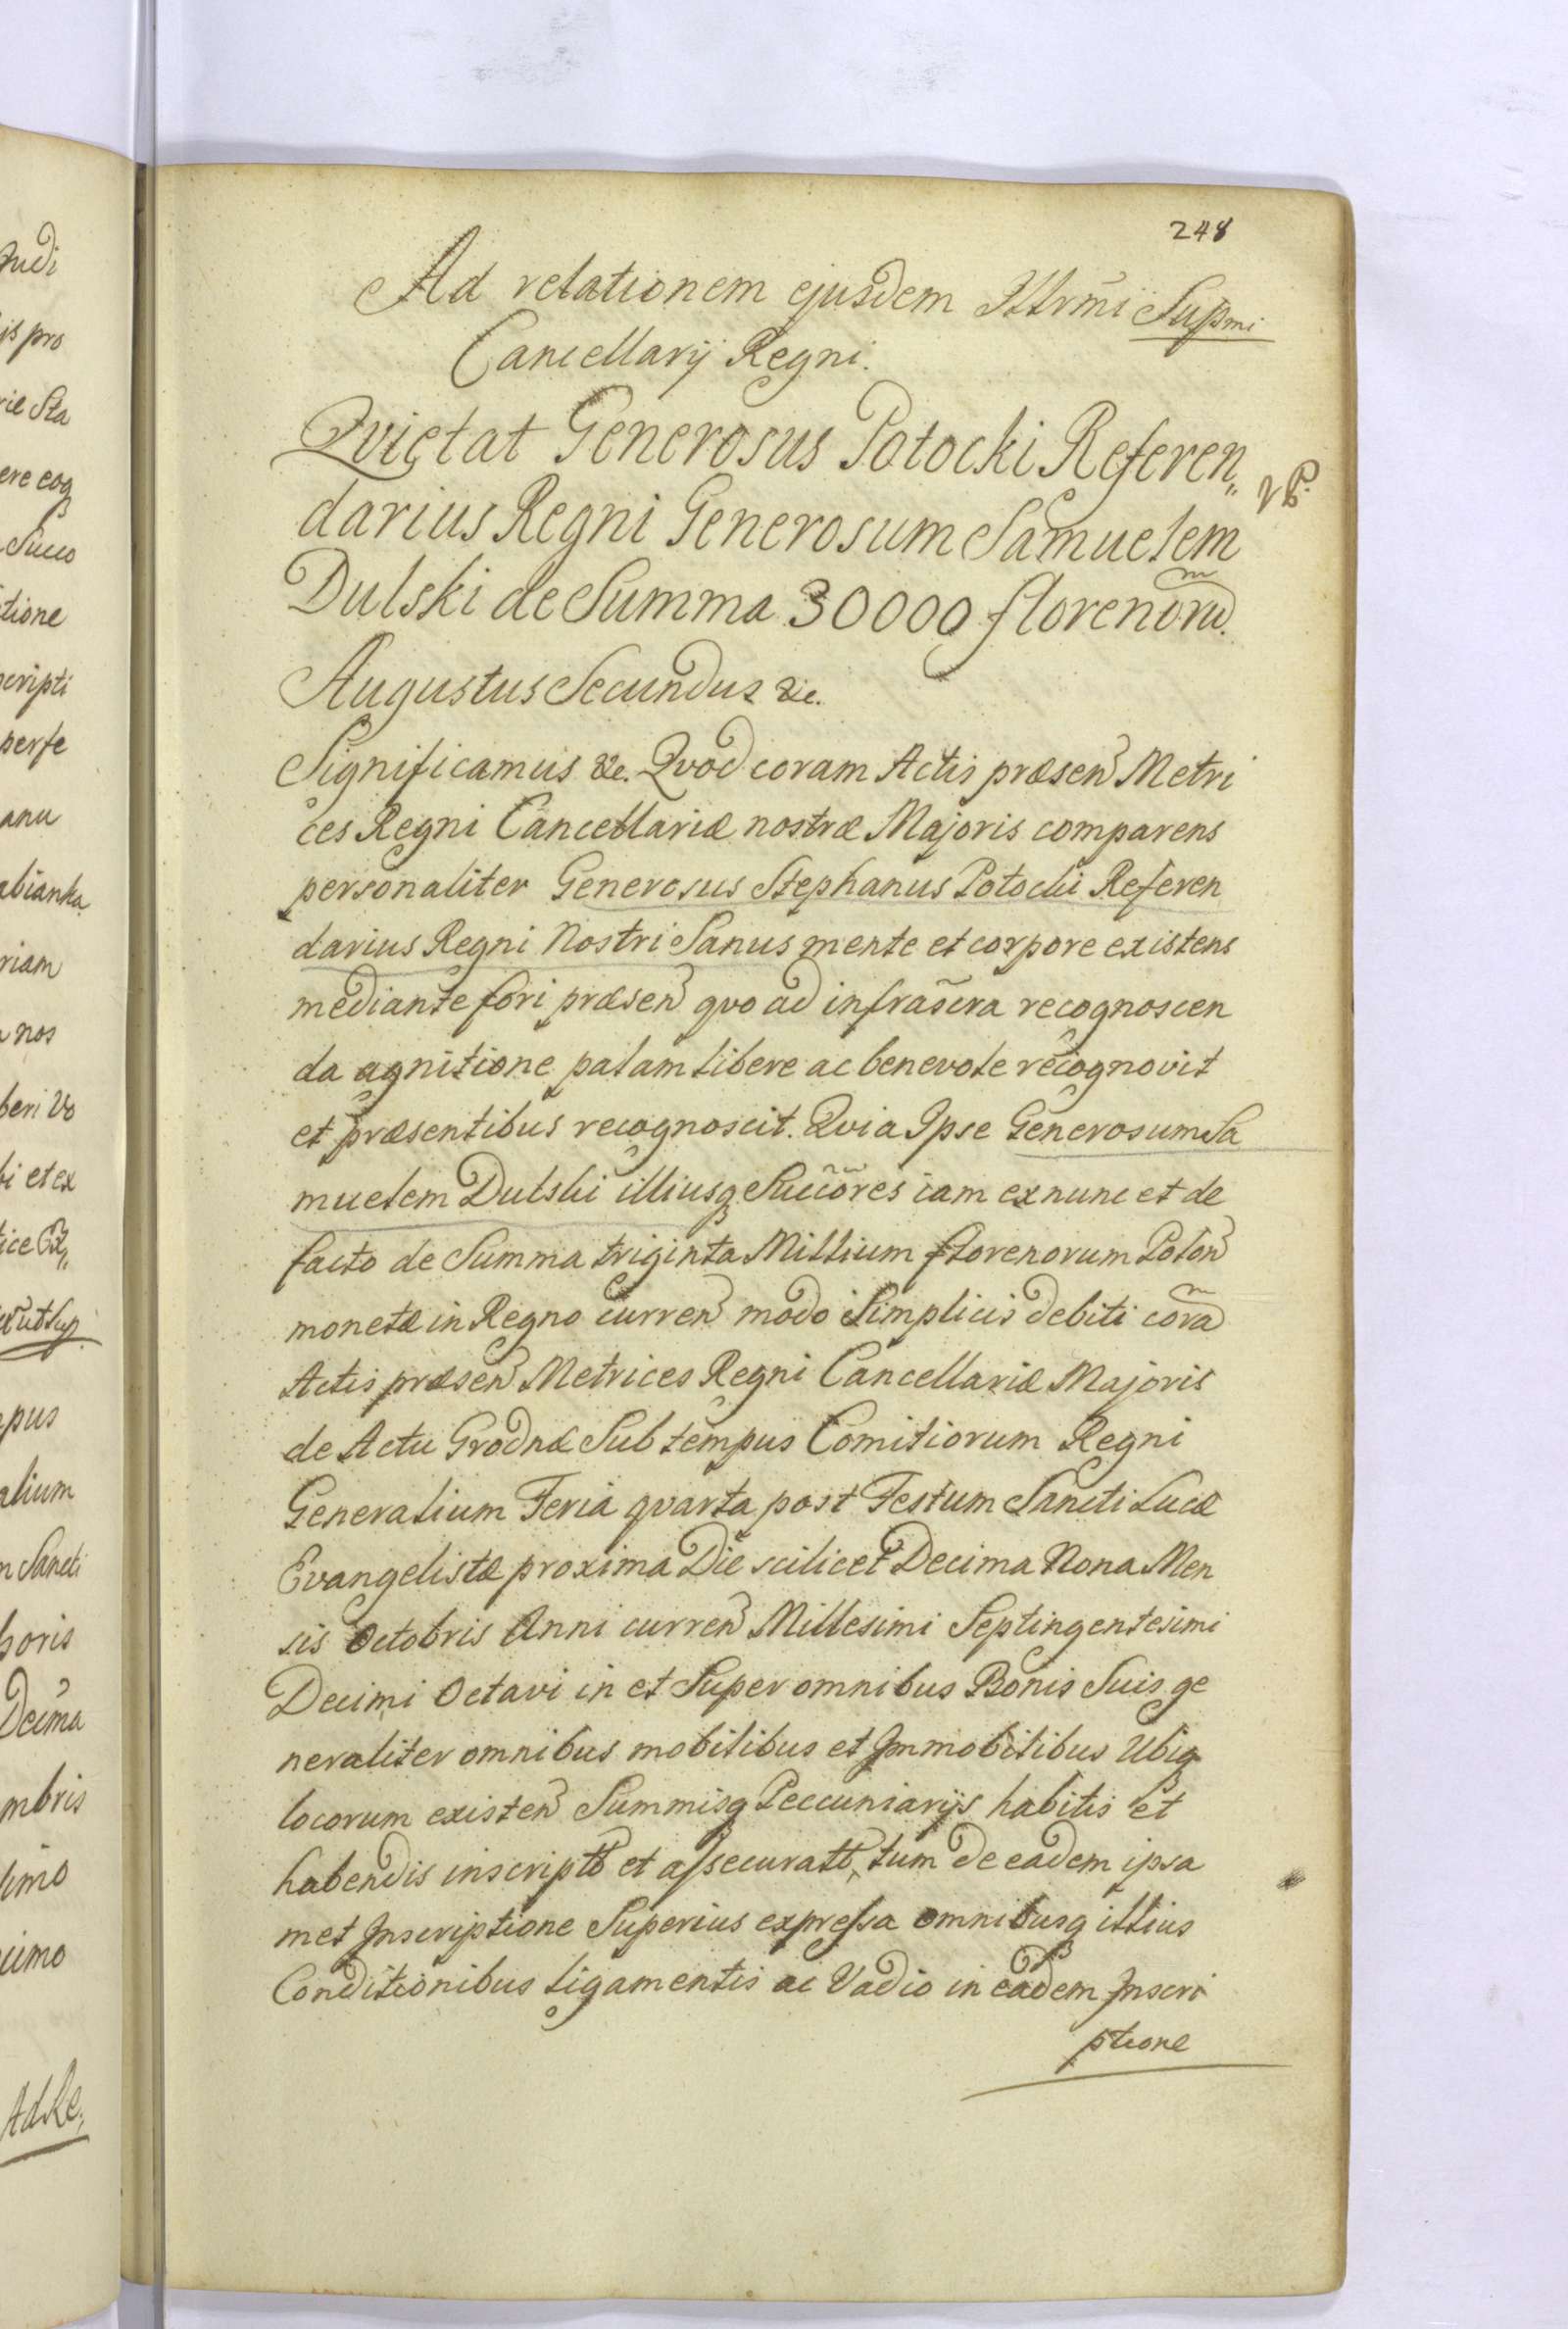 248
Ad relationem ejusdem Illrmi Supmi
Cancellarij Regni.
Qvietat Generosus Potocki Referen„
darius Regni Generosum Samuelem
Dulski de Summa 30000 florenorũ.
Augustus Secundus &c.
Significamus &c. Qvod coram Actis præsen Metri
ces Regni Cancellariæ nostræ Majoris comparens
personaliter Generosus Stephanus Potocki Referen
darius Regni Nostri Sanus mente et corpore existens
mediante fori præsen qvo ad infrascra recognoscen
da agnitione palam libere ac benevole recognovit
et præsentibus recognoscit. Qvia Ipse Generosum Sa
muelem Dulski illiusq Succores iam ex nunc et de
facto de Summa triginta Millium florenorum Polon
monetæ in Regno curren modo Simplicis debiti corã
Actis præsen Metrices Regni Cancellariæ Majoris
de Actu Grodnæ Sub tempus Comitiorum Regni
Generalium Feria qvarta post Festum Sancti Lucæ
Evangelistæ proxima Die scilicet Decima Nona Men
sis Octobris Anni curren Millesimi Septingentesimi
Decimi Octavi in et Super omnibus Bonis Suis ge
neraliter omnibus mobilibus et Immobilibus Ubiq
locorum existen Summisq Peccuniarijs habitis et
habendis inscriptt et assecuratt, tum de eadem ipsa
met Inscriptione Superius expressa omnibusq illius
Conditionibus ligamentis ac Vadio in eadem Inscri
ptione